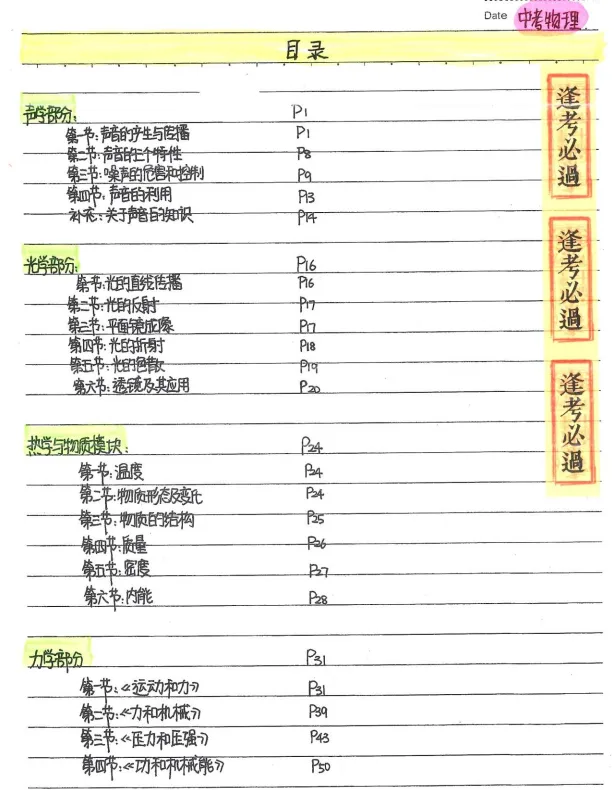 Date 中考物理
目录
声学部分: P1
第一节:声音的产生与传播 P1
第二节:声音的三个特性 P8
第三节:噪声的危害和控制 P9
第四节:声音的利用 P13
补充:关于声音的知识 P14
光学部分: P16
第一节:光的直线传播 P16
第二节:光的反射 P17
第三节:平面镜成像 P17
第四节:光的折射 P18
第五节:光的色散 P19
第六节:透镜及其应用 P20
热学与物质模块: P24
第一节:温度 P24
第二节:物质形态及变化 P24
第三节:物质的结构 P25
第四节:质量 P26
第五节:密度 P27
第六节:内能 P28
力学部分 P31
第一节:《运动和力》 P31
第二节:《力和机械》 P39
第三节:《压力和压强》 P43
第四节:《功和机械能》 P50
逢考必過
逢考必過
逢考必過